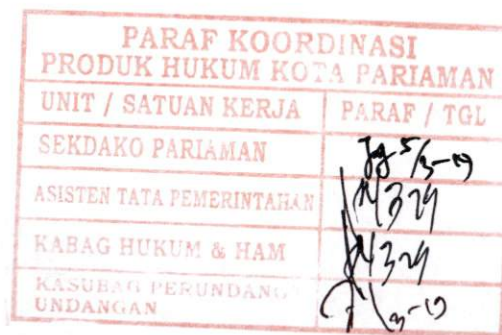 PARAF KOORDINASI
PRODUK HUKUM KOTA PARIAMAN
UNIT / SATUAN KERJA PARAF / TGL
SEKDAKO PARIAMAN 5/3-19
ASISTEN TATA PEMERINTAHAN
KABAG HUKUM & HAM
KASUBAG PERUNDANG
UNDANGAN